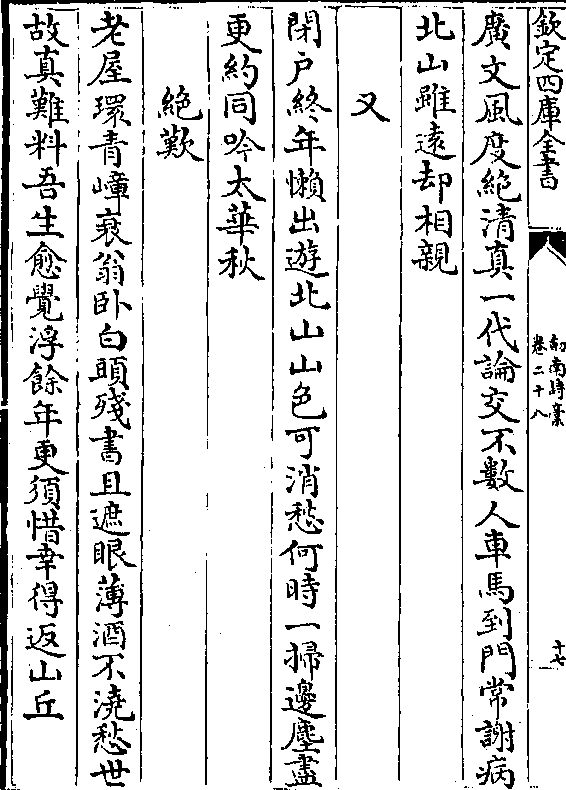 欽定四庫全書
劒南詩稾
卷二十八
十七
廣文風度絶清真一代論交不數人車馬到門常謝病
北山雖遠却相親
又
閉戶終年懶出遊北山山色可消愁何時一掃邊塵盡
更約同吟太華秋
絶歎
老屋環青嶂衰翁卧白頭殘書且遮眼薄酒不澆愁世
故真難料吾生愈覺浮餘年更須惜幸得返山丘